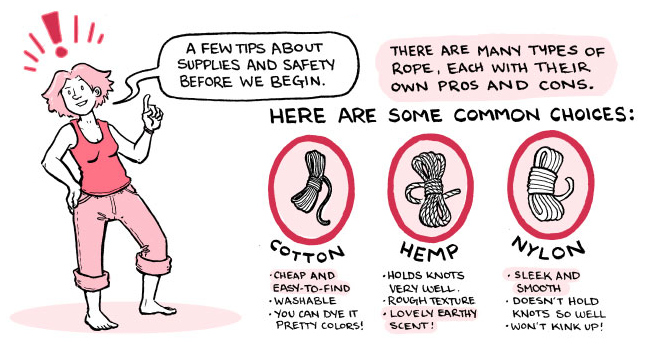 A FEW TIPS ABOUT
SUPPLIES AND SAFETY
BEFORE WE BEGIN.
THERE ARE MANY TYPES OF
ROPE, EACH WITH THEIR
OWN PROS AND CONS.
HERE ARE SOME COMMON CHOICES:
COTTON
• CHEAP AND
EASY-TO-FIND
• WASHABLE
• YOU CAN DYE IT
PRETTY COLORS!
HEMP
• HOLDS KNOTS
VERY WELL.
• ROUGH TEXTURE
• LOVELY EARTHY
SCENT!
NYLON
• SLEEK AND
SMOOTH
• DOESN'T HOLD
KNOTS SO WELL
• WON'T KINK UP!